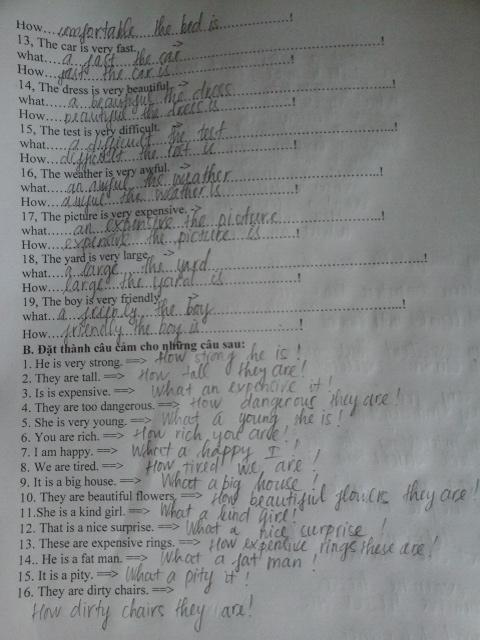 How....comfortable the bed is..................!
13, The car is very fast. ->
what....a fast the car..................!
How....fast the car is..................!
14, The dress is very beautiful ->
what....a beautiful the dress..................!
How....beautiful the dress is..................!
15, The test is very difficult. ->
what....a difficult the test..................!
How....difficult the test is..................!
16, The weather is very awful. ->
what....an awful the weather..................!
How....awful the weather is..................!
17, The picture is very expensive. ->
what....an expensive the picture..................!
How....expensive the picture is..................!
18, The yard is very large ->
what....a large the yard..................!
How....large the yard is..................!
19, The boy is very friendly
what....a friendly the boy..................!
How....friendly the boy is..................!
B. Đặt thành câu cảm cho những câu sau:
1. He is very strong. ==> How strong he is !
2. They are tall. ==> How tall they are!
3. Is is expensive. ==> What an expensive it !
4. They are too dangerous. ==> How dangerous they are !
5. She is very young. ==> What a young she is !
6. You are rich. ==> How rich you are!
7. I am happy. ==> What a happy I !
8. We are tired. ==> How tired we are !
9. It is a big house. ==> What a big house !
10. They are beautiful flowers. ==> How beautiful flowers they are !
11.She is a kind girl. ==> What a kind girl!
12. That is a nice surprise. ==> What a nice surprise !
13. These are expensive rings. ==> How expensive rings these are!
14.. He is a fat man. ==> What a fat man !
15. It is a pity. ==> What a pity it !
16. They are dirty chairs. ==>
How dirty chairs they are!